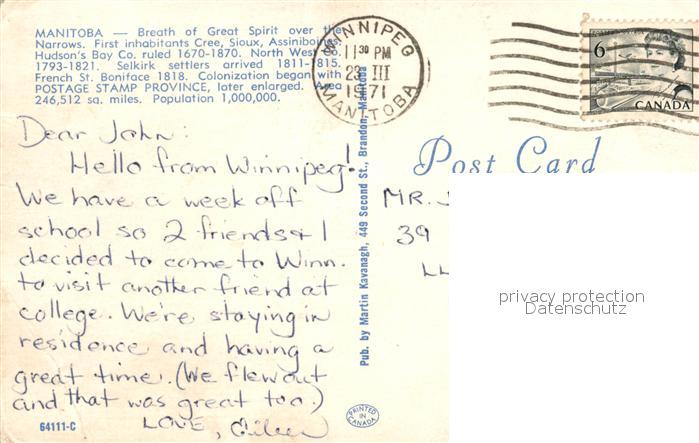 MANITOBA — Breath of Great Spirit over the
Narrows. First inhabitants Cree, Sioux, Assiniboine.
Hudson's Bay Co. ruled 1670-1870. North West Co.
1793-1821. Selkirk settlers arrived 1811-1815.
French St. Boniface 1818. Colonization began with
POSTAGE STAMP PROVINCE, later enlarged. Area
246,512 sq. miles. Population 1,000,000.
WINNIPEG
11 30 PM
23 III
1971
MANITOBA
6
CANADA
Dear John:
Hello from Winnipeg!
We have a week off
school so 2 friends & I
decided to come to Winn.
to visit another friend at
college. We're staying in
residence and having a
great time. (We flew out
and that was great too.)
LOVE, Eileen
64111-C
Pub. by Martin Kavanagh, 449 Second St., Brandon, Manitoba
PRINTED IN CANADA
Post Card
MR.
39
privacy protection
Datenschutz